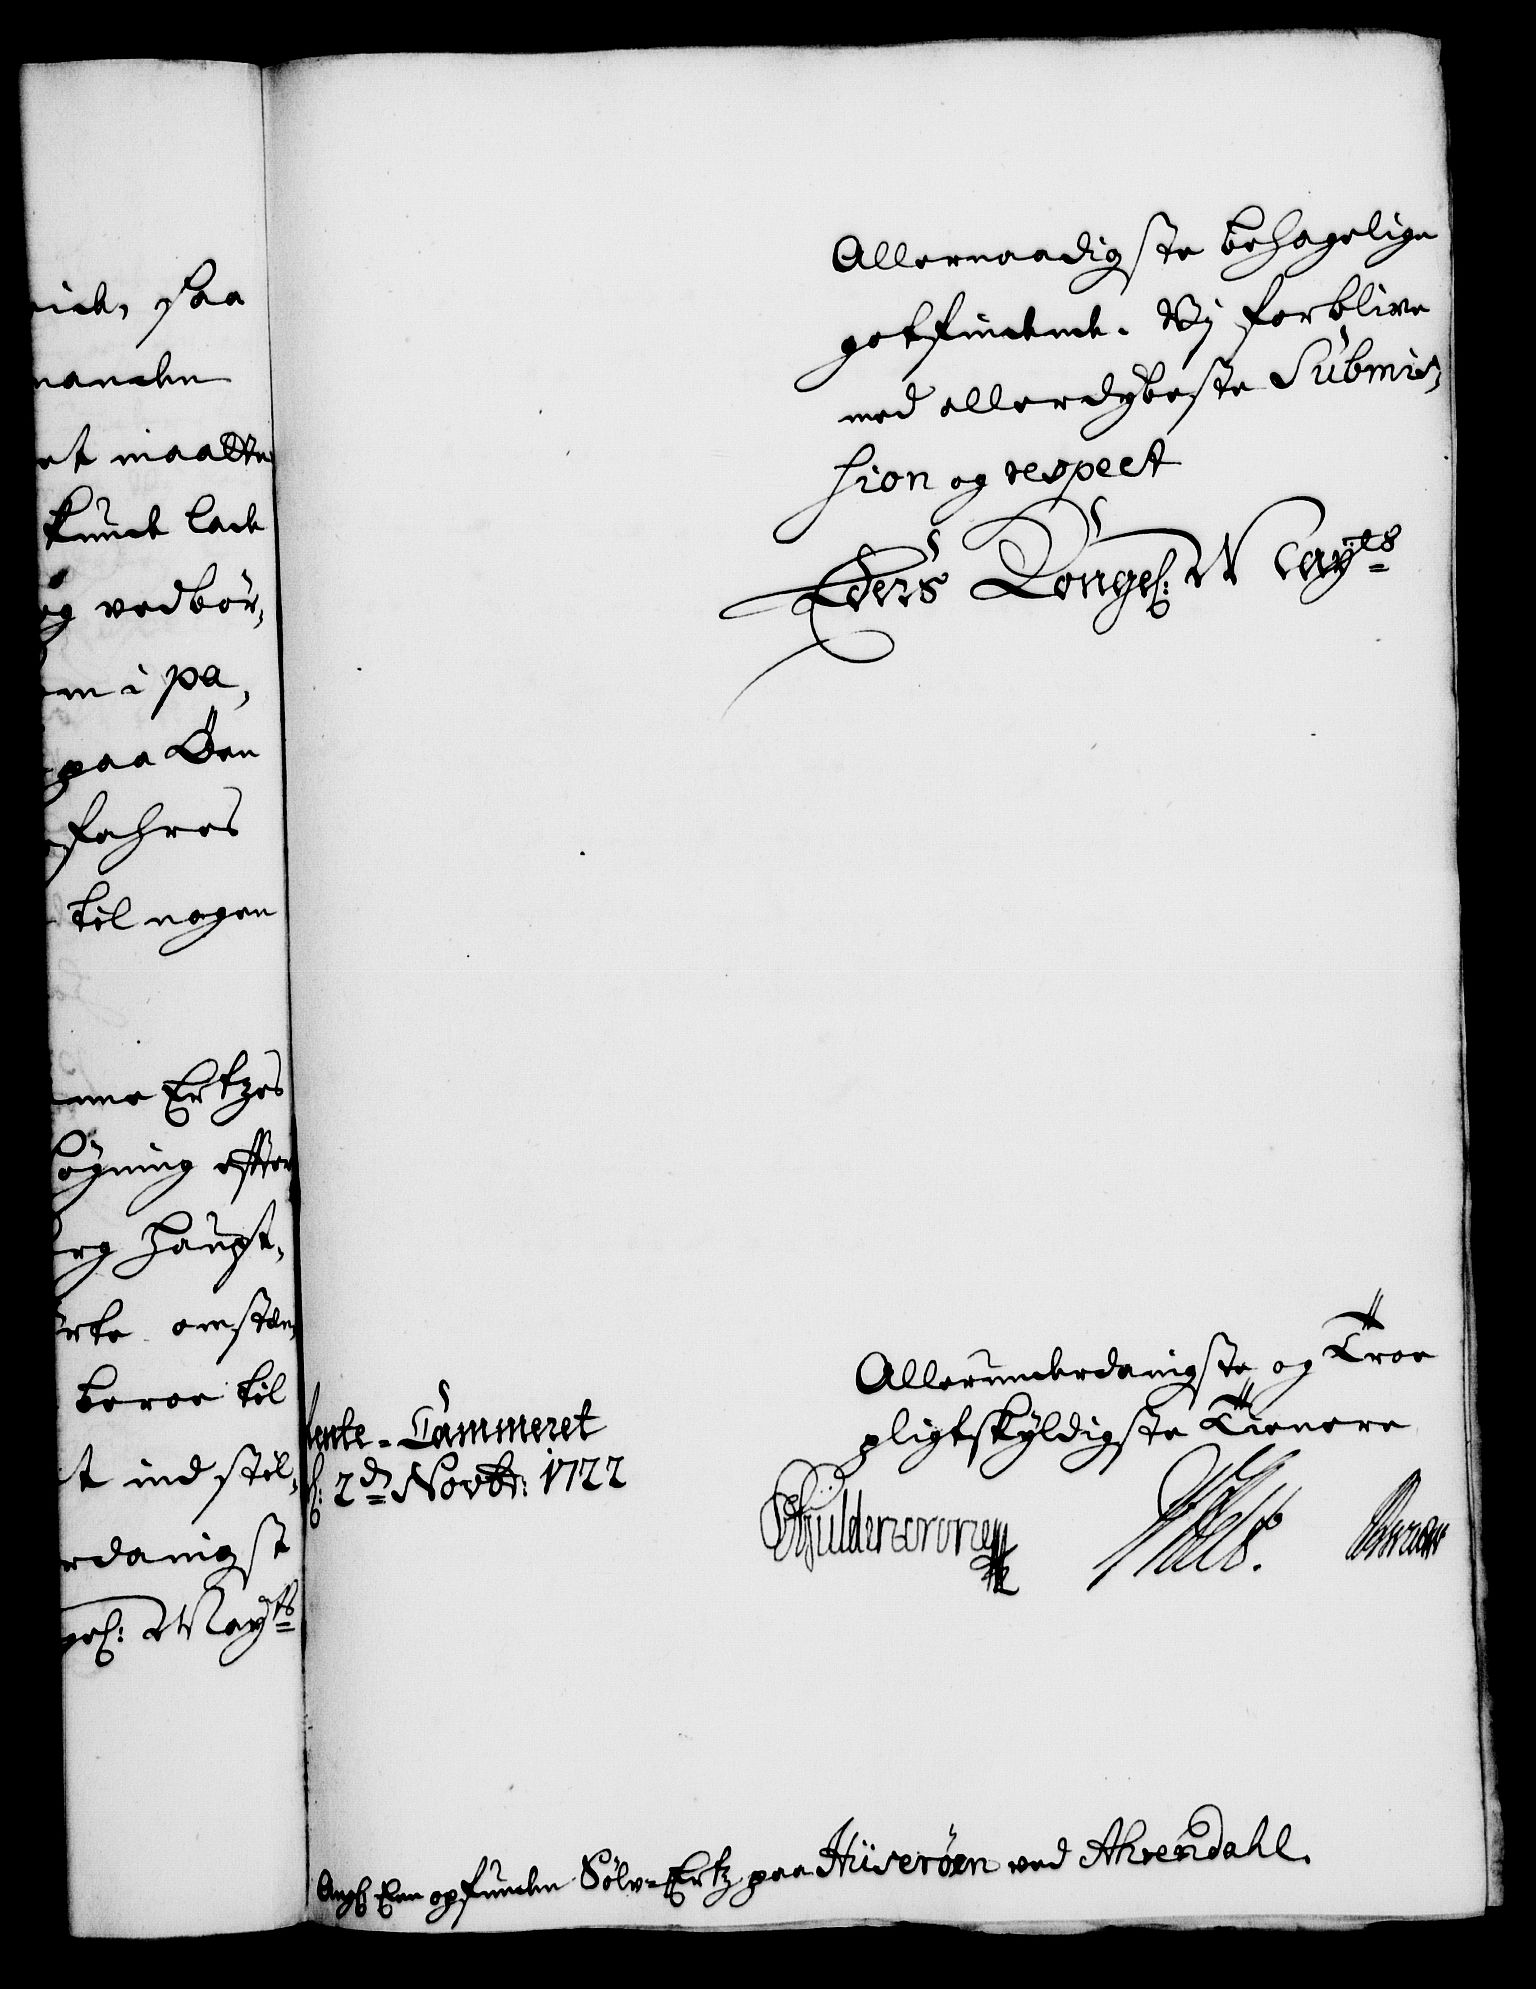 saa
et maatte
kund lade
og vedbør,
om i pa,
paa den
fahres
til nogen
Ertzes
øgning effter
erg Haupt,
omstæn,
beroe til
t indstil,
rdanigst
gel: Mayts
Allernaadigste behagelige
gotfindende. Vj forblive
med allerdybeste Submis,
sion og respect
Eders Kongel: Mayts
Allerunderdanigste og Troe
pligtskyldigste Tienere
Rente-Cammeret
2d Novbr: 1722
Gÿldencrone
Ang: Een opfunden Sölv-Ertz paa Hüserøen ved Ahrendahl.